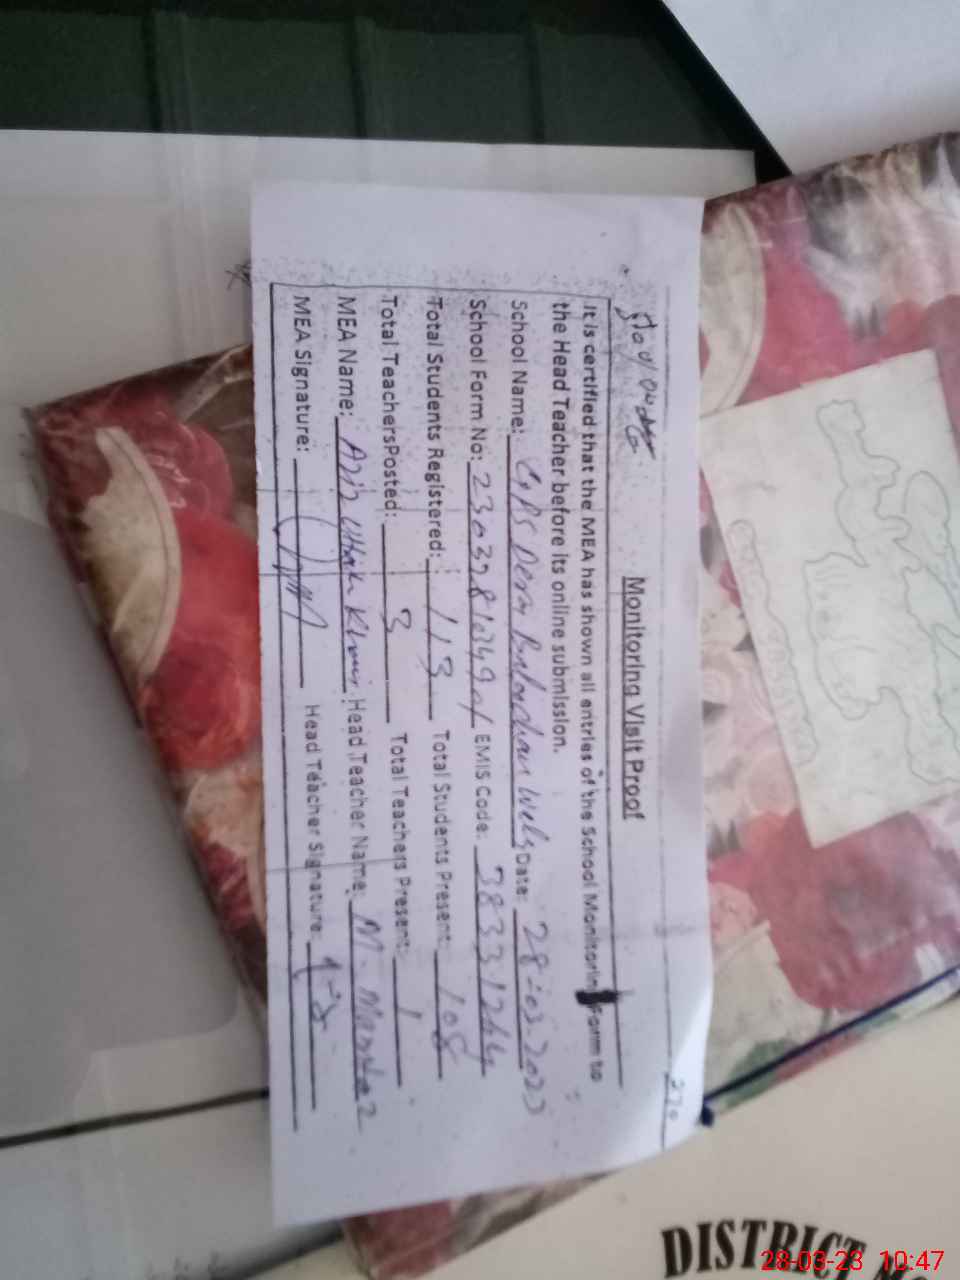 270
Monitoring Visit Proof
It is certified that the MEA has shown all entries of the School Monitoring Form to
the Head Teacher before its online submission.
School Name: GPS Dera Balochan Wels Date: 28-03-2023
School Form No: EMIS Code: 38331244
Total Students Registered: 113 Total Students Present: 108
Total TeachersPosted: 3 Total Teachers Present: 1
MEA Name: Head Teacher Name: M.
MEA Signature: Head Teacher Signature:
DISTRICT
28-03-23 10:47